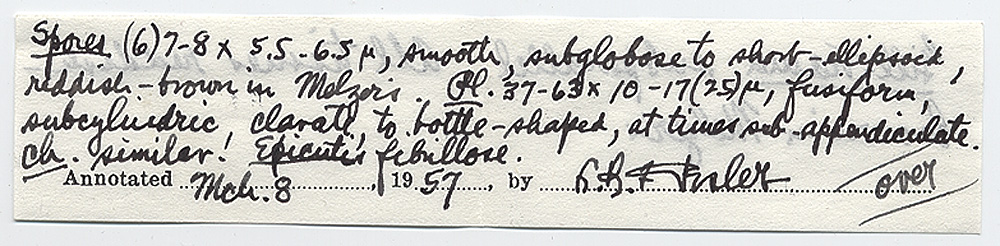 Spores (6)7-8 x 5.5-6.5 µ, smooth, subglobose to short-ellipsoid,
reddish-brown in Melzer's. Pl. 37-63 x 10-17(25)µ, fusiform,
subcylindric, clavate, to bottle-shaped, at times sub-appendiculate.
Ch. similar! Epicutis fibrillose.
Annotated Mch. 8, 1957, by over